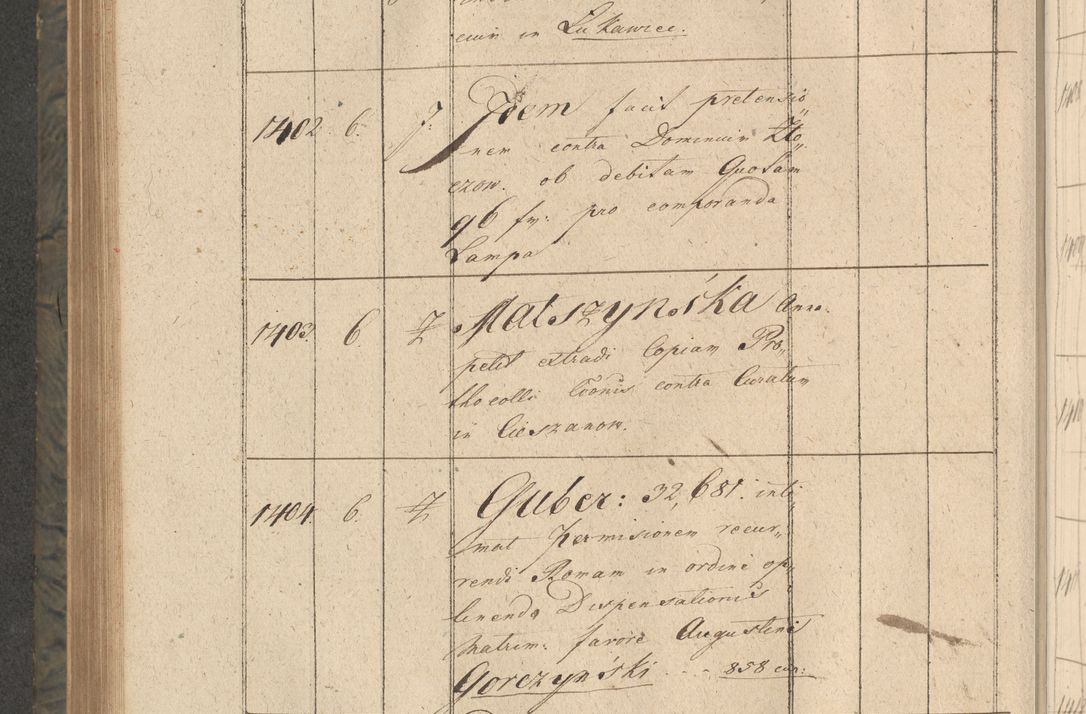 cum in Lukawiec.
1402. 6. 7. Idem facit pretensio„
nem contra Dominium Zło„
czow. ob debitam Quotam
96 fr: pro comparanda
Lampa
1403. 6 7 Matszyńska Anna.
petit extradi Copiam Pro„
thocolli Coonis contra Curatum
in Cieszanow.
1404. 6. 7 Guber: 32,681. inti„
mat Permisionem recur„
rendi Romam in ordine op„
tinenda Dispensationis
Matrim: favore Augustini
Gorczyński - - 858 cur: